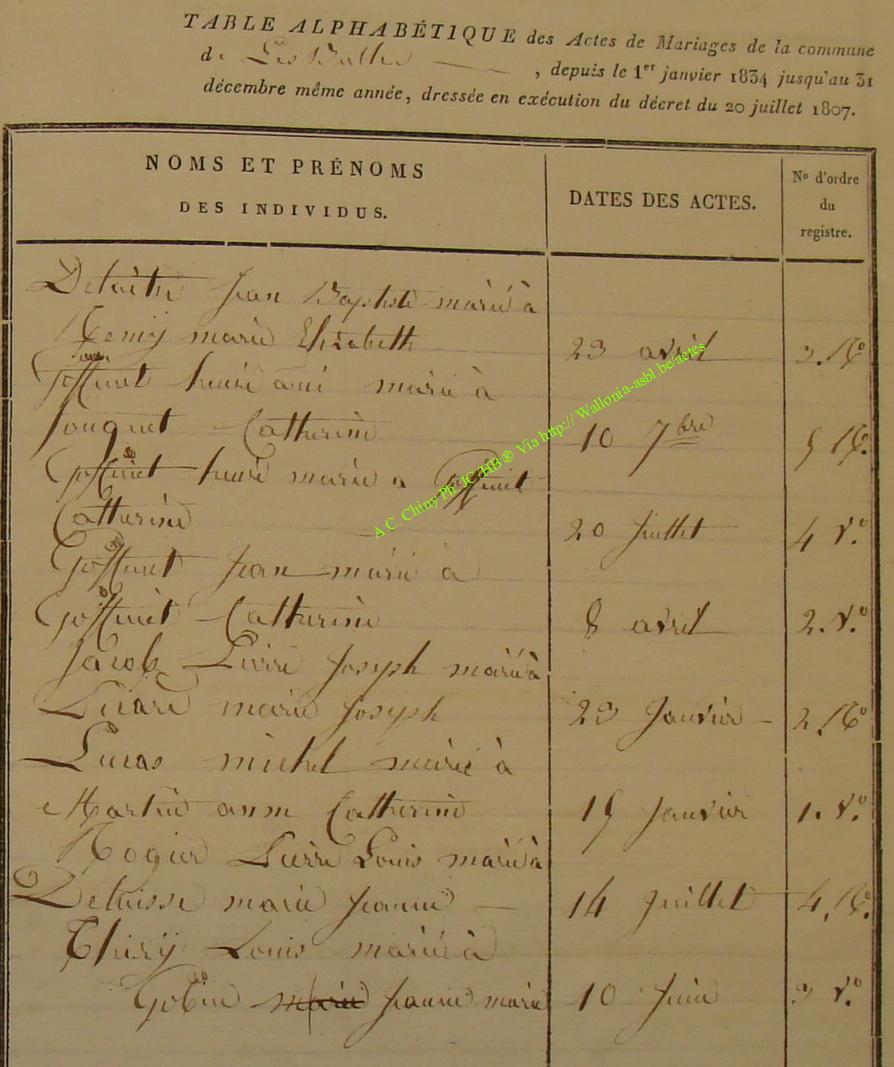 TABLE ALPHABÉTIQUE des Actes de Mariages de la commune
de Les Bulles, depuis le 1er janvier 1834 jusqu'au 31
décembre même année, dressée en exécution du décret du 20 juillet 1807.
NOMS ET PRÉNOMS
DES INDIVIDUS.
DATES DES ACTES.
No d'ordre
du
registre.
Jean Baptiste marié à
Remy marie Elisabeth 23 avril 3. Ro
Goffinet henri marié à
Catherine 10 7bre 5 Ro.
Goffinet henri marié a Goffinet
Catherine 20 Juillet 4 Vo.
Goffinet Jean marié à
Goffinet Catherine 8 avril 2. Vo.
Jacob Pierre Joseph marié à
marie Joseph 23 Janvier 2. Ro
Lucas michel marié à
Martin anne Catherine 15 Janvier 1. Vo.
Rogier Pierre Louis marié à
Delaisse marie Jeanne 14 Juillet 4, Ro.
Thiry Louis marié à
Gobin marie Jeanne marie 10 Juin 3 Vo.
A.C. Chiny Ph JC HB® Via http:// Wallonia-asbl.be/actes